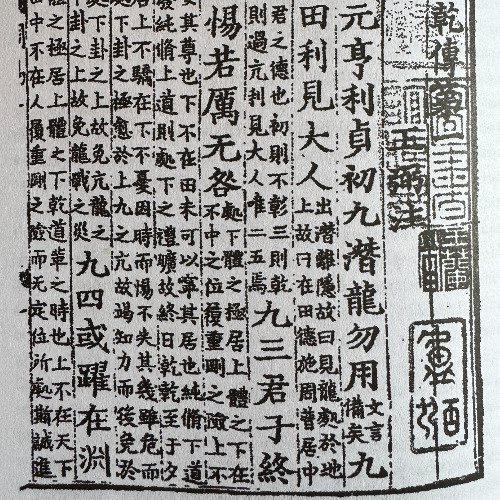 乾傳第
王弼注
元亨利貞初九潛龍勿用文言
備矣九
田利見大人出潛離隱故曰見龍處於地
上故曰在田德施周普居中
君之德也初則不彰三則乾
則過亢利見大人唯二五焉九三君子終
惕若厲无咎處下體之極居上體之下在
不中之位履重剛之險上不
安其尊也下不在田未可以寧其居也純脩下道
廢純脩上道則處下之禮曠故終日乾乾至于夕
居上不驕在下不憂因時而惕不失其幾雖危而
處下卦之極愈於上九之亢故竭知力而後免於
處下卦之上故免亢龍之
下卦之上故免龍戰之災九四或躍在淵
體之極居上體之下乾道革之時也上不在天下
中不在人履重剛之險而无定位所處斯誠進